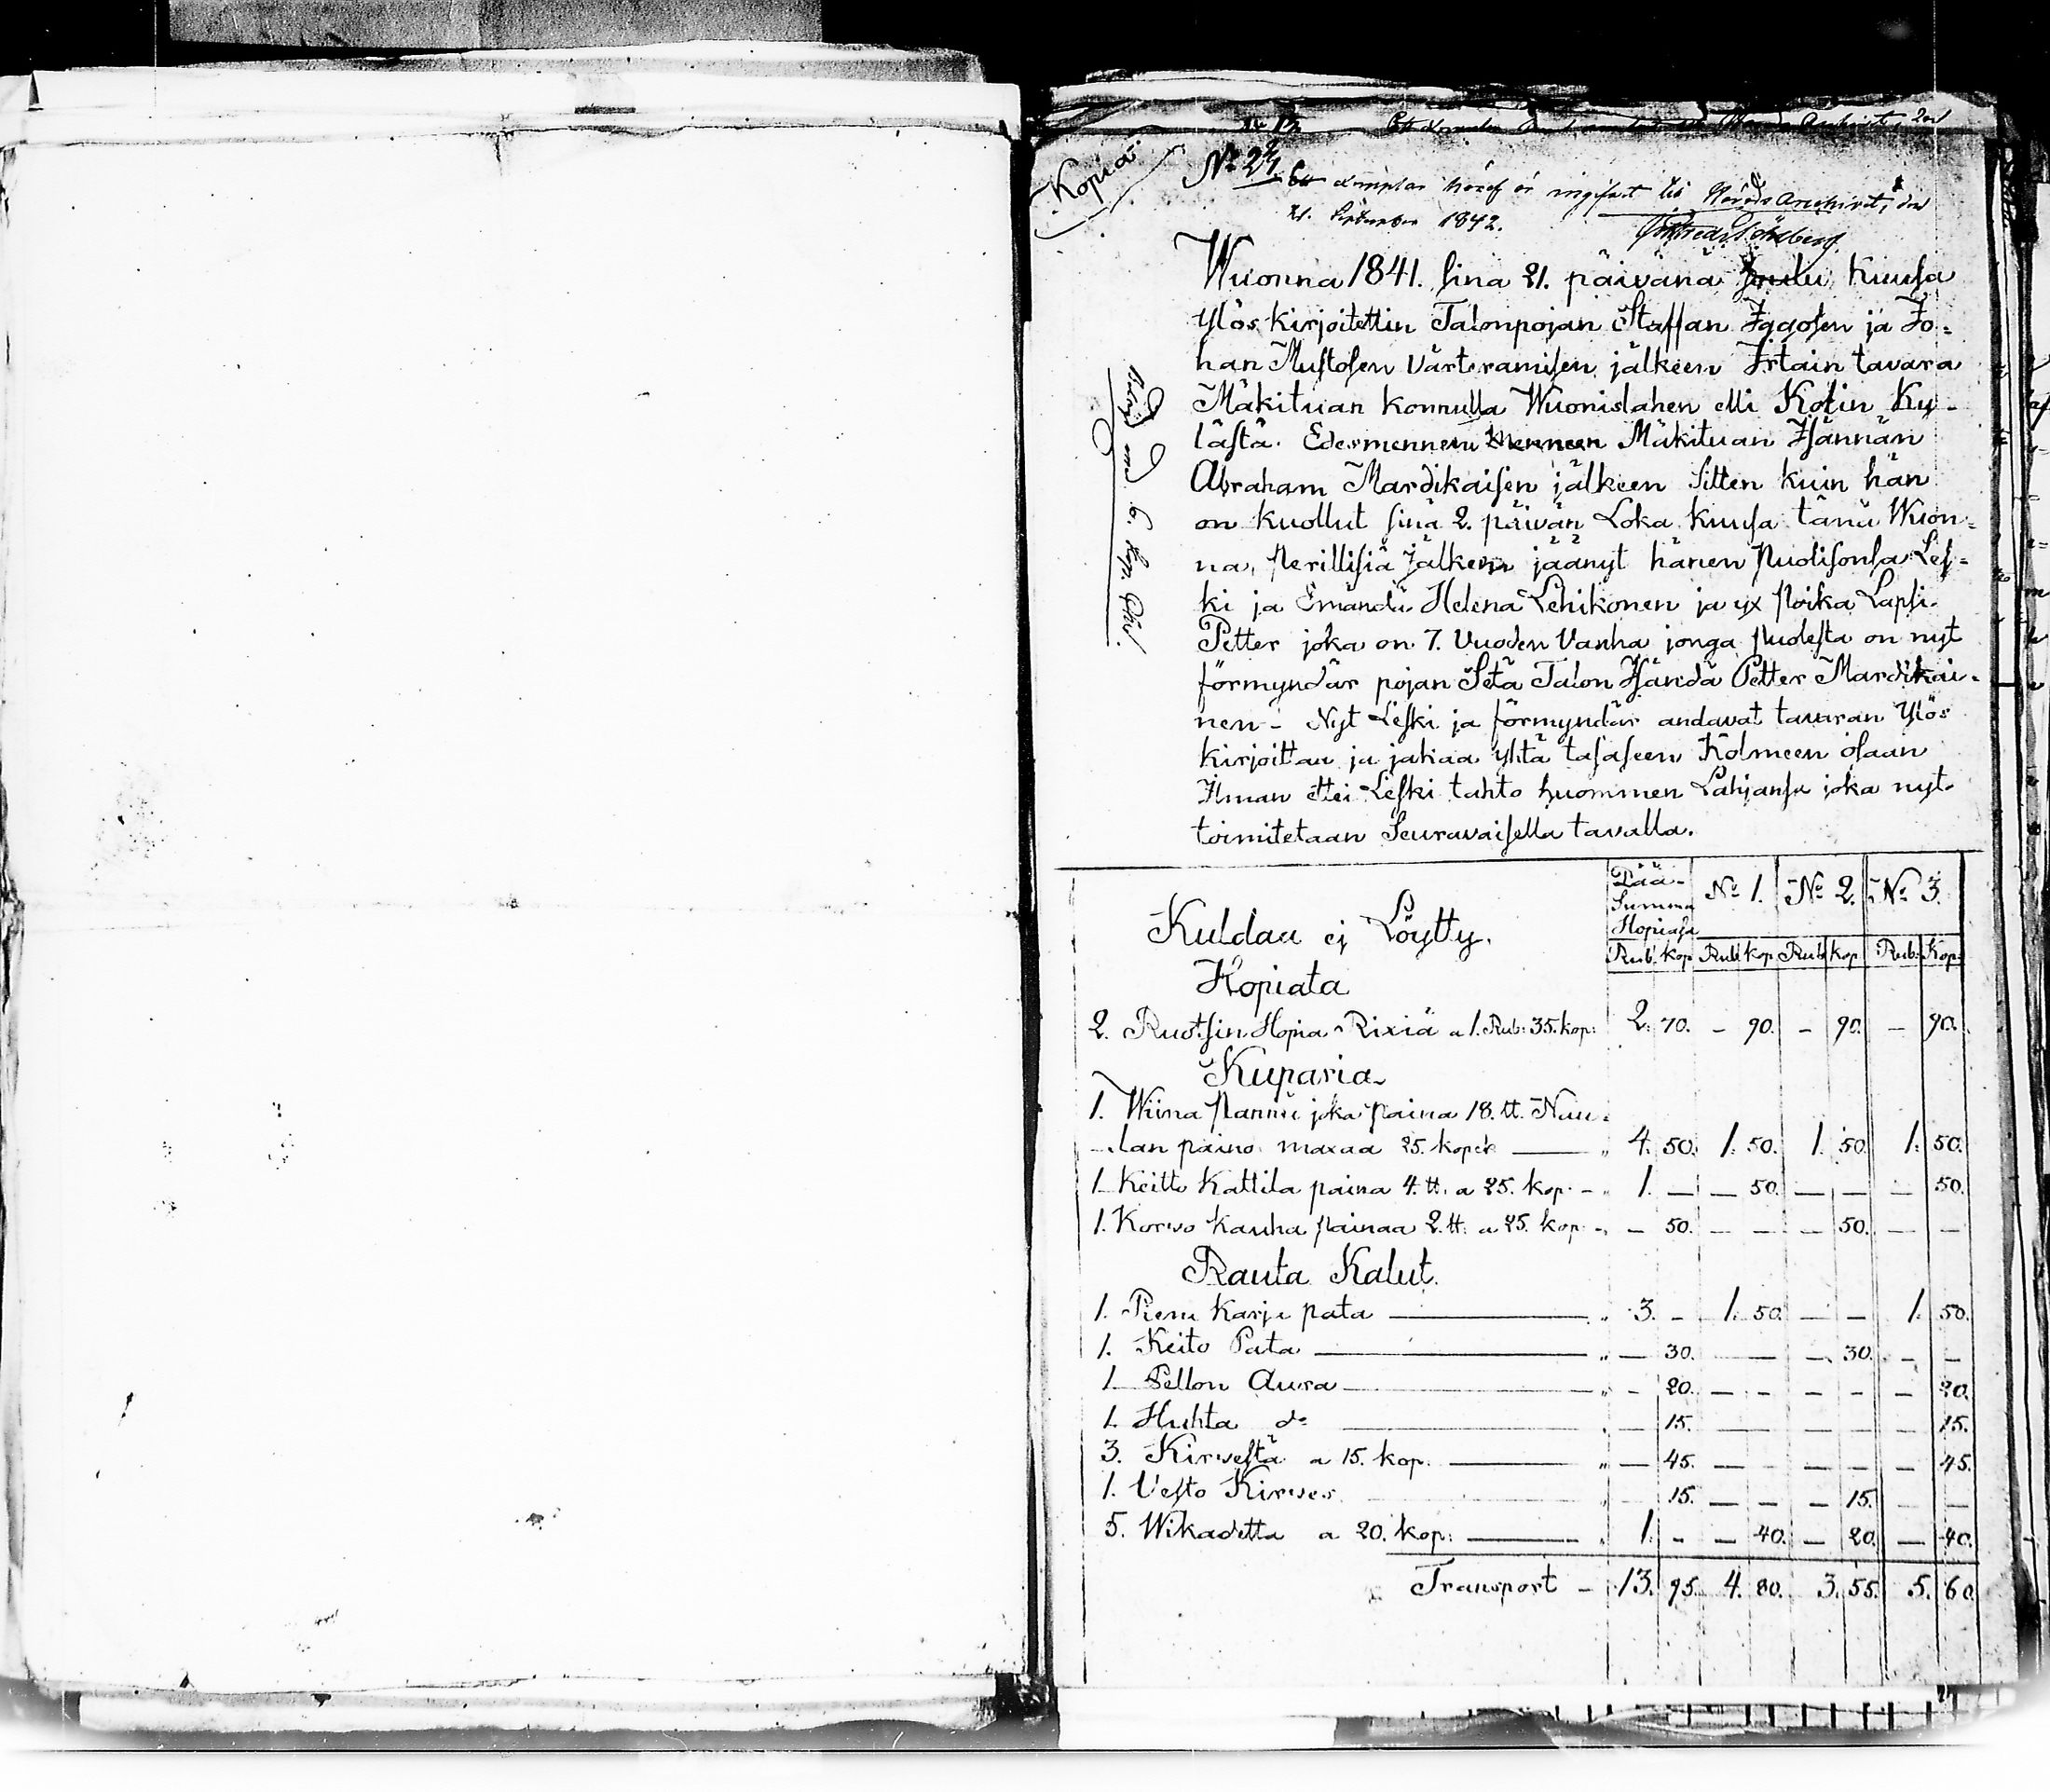 Kopia
No 24.
Ett exemplar häraf är ingifvet till Härads Archivet, den
21. 1842.
Wuonna 1841. sina 21. päivänä Joulu Kuusa
Ylös kirjoitettin Talonpojan Staffan Iggosen ja Jo=
han Mustosen Värteramisen jälkeen Irtain tavara
Mäkituan konnulla Wuonislahen elli Kolin Ky-
lästä. Edesmennen menneen Mäkituan Isännän
Abraham Mardikaisen jälkeen Sitten kuin hän
on kuollut sinä 2. päivän Loka kuusa tänä Wuon=
na, Perillisiä Jälken jäänyt hänen Puolisonsa Les=
ki ja Emändä Helena Lehikonen ja yx Poika Lapsi
Petter joka on 7. Vuoden Vanha jonga Puolesta on nyt
förmyndär pojan Setä Talon Isändä Petter Mardikai=
nen - Nyt Leski ja förmyndär andavat tavaran Ylös
kirjoittaa ja jakaa yhtä tasaseen Kolmeen osaan
Ilman ettei Leski tahto huommen Lahjansa joka nyt
toimitetaan Seuravaisella tavalla.
Pää- Summa Hopiasa No 1. No 2. No 3.
Kuldaa ej Löytty.
Rub kop Rub kop Rub kop Rub: Kop:
Hopiata
2. Ruotsin Hopia Rixiä a 1. Rub: 35. kop: 2. 70. – 90. – 90. – 90.
Kuparia
1. Wiina Pannu joka Paina 18. ℔. Nau=
-lan paino maxaa 25. kopek — " 4. 50. 1. 50. 1. 50. 1. 50.
1. Keitto Kattila paina 4. ℔. a 25. kop. – " 1. — — 50. — — — 50.
1. Korwo kauha Painaa 2. ℔. a 25. kop: – – 50. — — — 50. — —
Rauta Kalut.
1. Pieni Karja pata — " 3. – 1. 50. — — 1. 50.
1. Keito Pata — " — 30. — — – 30. – –
1. Pellon Aura — " – 20. — – – – – 20.
1. Huhta do — – 15. — — — — — 15.
3. Kirvestä a 15. kop. — " — 45. — — – – — 45.
1. Vesto Kirves — " – 15. — – – 15. – —
5. Wikadetta a 20. kop: — " 1. – – 40. – 20. — 40.
Transport – 13. 95. 4. 80. 3. 55. 5. 60.